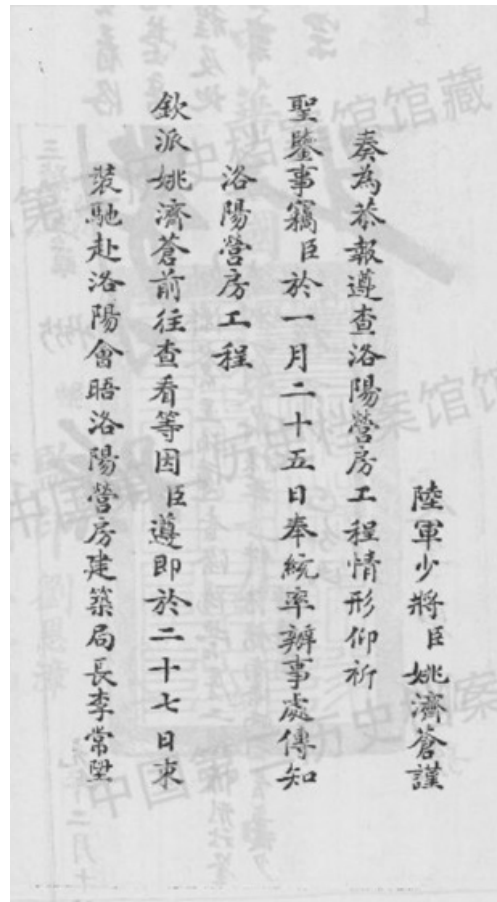 陸軍少將臣姚濟蒼謹
奏為恭報遵查洛陽營房工程情形仰祈
聖鑒事竊臣於一月二十五日奉統率辦事處傳知
洛陽營房工程
欽派姚濟蒼前往查看等因臣遵即於二十七日束
裝馳赴洛陽會晤洛陽營房建築局長李常